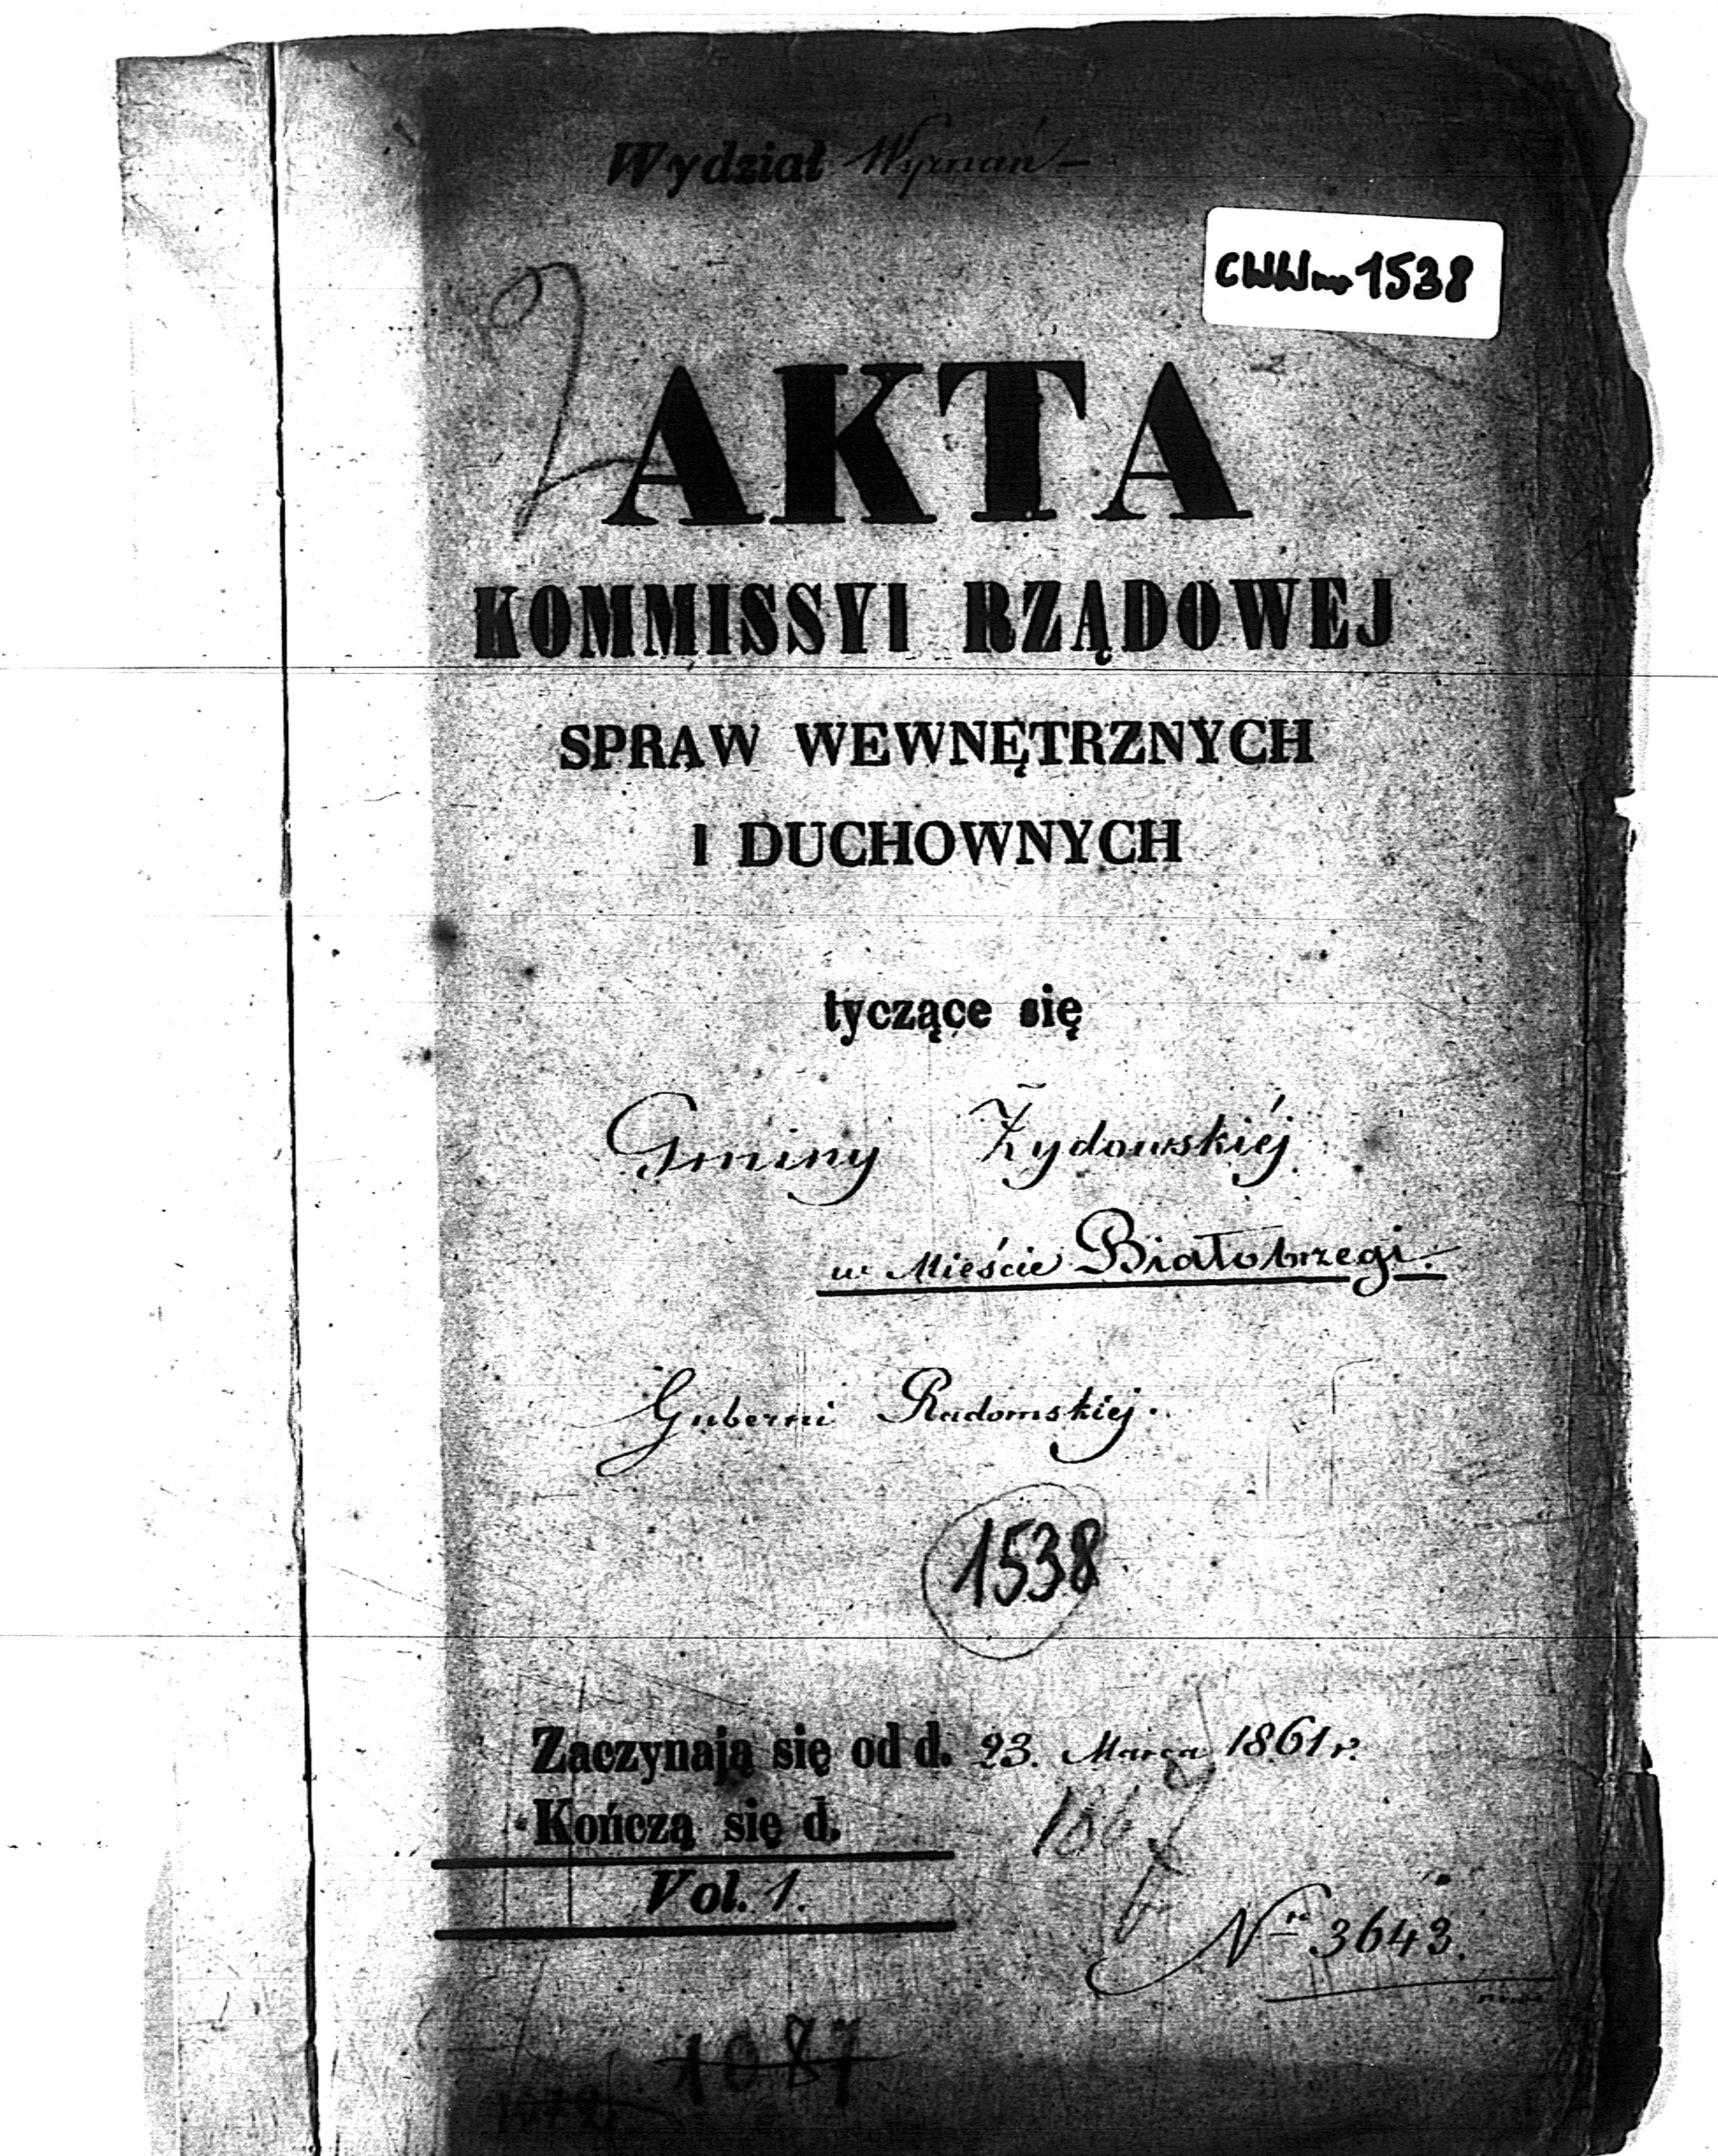 Wydział Wyznań —
CWW 1538
2
AKTA
KOMMISSYI RZĄDOWEJ
SPRAW WEWNĘTRZNYCH
I DUCHOWNYCH
tyczące się
Gminy Żydowskiéj
w Mieście Białobrzegi.
Guberni Radomskiej.
1538
Zaczynają się od d. 23. Marca 1861 r.
Kończą się d.
Vol. 1.
Nro 3643.
1087